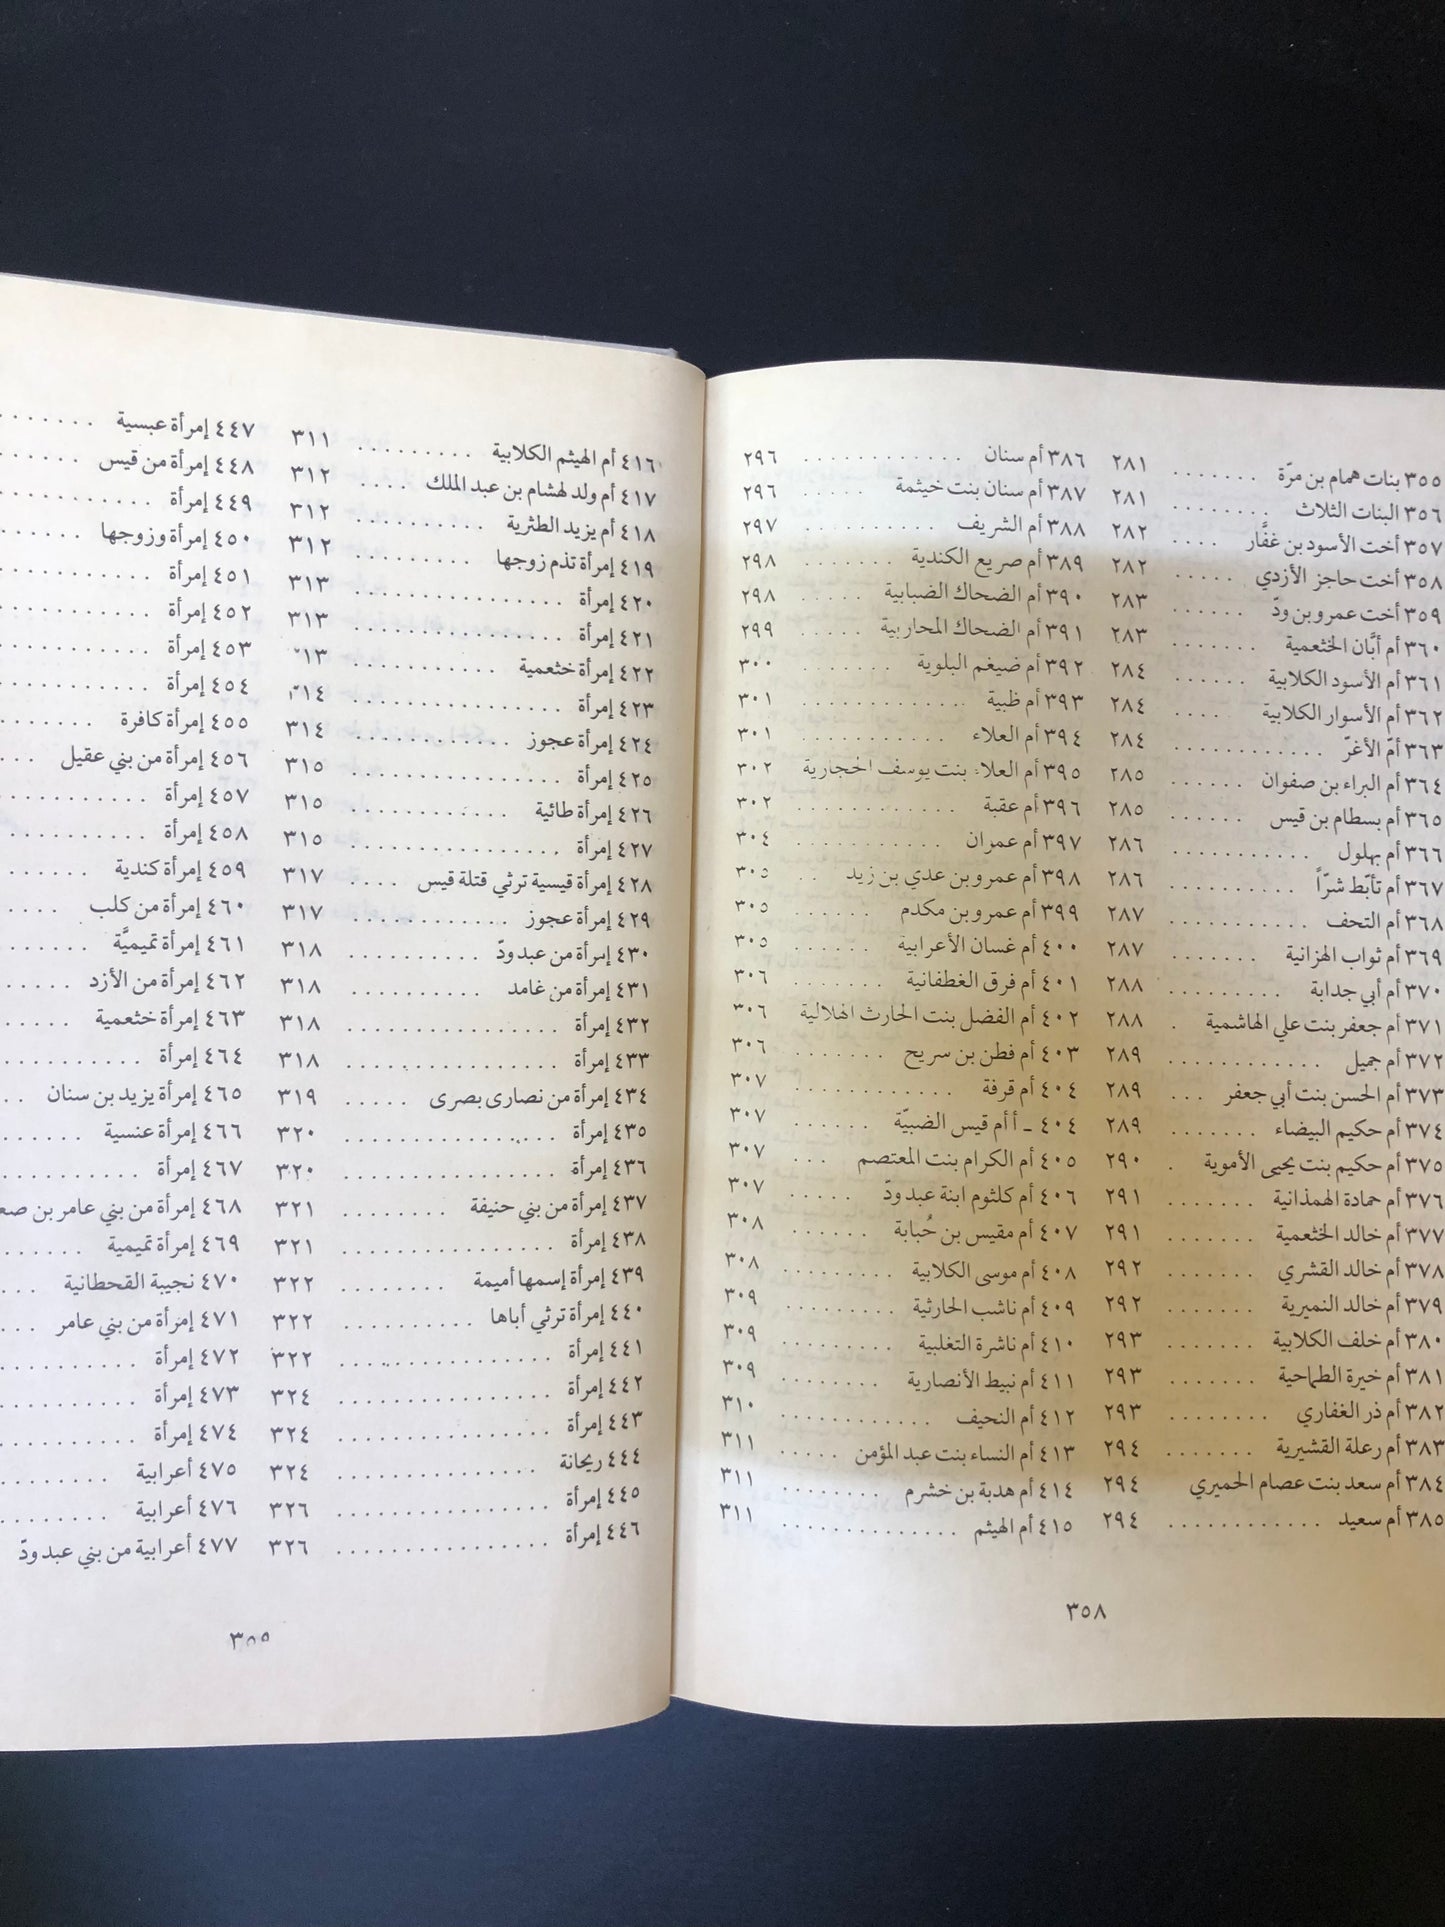 ٣٥٥ بنات همام بن مرّة . . . . . . ٢٨١
٣٥٦ البنات الثلاث . . . . . . . . ٢٨١
٣٥٧ أخت الأسود بن غفَّار . . . . ٢٨٢
٣٥٨ أخت حاجز الأزدي . . . . . ٢٨٢
٣٥٩ أخت عمرو بن ودّ . . . . . . ٢٨٣
٣٦٠ أم أبَّان الخثعمية . . . . . . . ٢٨٣
٣٦١ أم الأسود الكلابية . . . . . . ٢٨٤
٣٦٢ أم الأسوار الكلابية . . . . . ٢٨٤
٣٦٣ أمّ الأغرّ . . . . . . . . . . . ٢٨٤
٣٦٤ أم البراء بن صفوان . . . . . . ٢٨٥
٣٦٥ أم بسطام بن قيس . . . . . . ٢٨٥
٣٦٦ أم بهلول . . . . . . . . . . . ٢٨٦
٣٦٧ أم تأبّط شرّاً . . . . . . . . . . ٢٨٦
٣٦٨ أم التحف . . . . . . . . . . . ٢٨٧
٣٦٩ أم ثواب الهزانية . . . . . . . ٢٨٧
٣٧٠ أم أبي جدابة . . . . . . . . . ٢٨٨
٣٧١ أم جعفر بنت علي الهاشمية . ٢٨٨
٣٧٢ أم جميل . . . . . . . . . . . . ٢٨٩
٣٧٣ أم الحسن بنت أبي جعفر . . . ٢٨٩
٣٧٤ أم حكيم البيضاء . . . . . . . ٢٨٩
٣٧٥ أم حكيم بنت يحيى الأموية . ٢٩٠
٣٧٦ أم حمادة الهمذانية . . . . . . . ٢٩١
٣٧٧ أم خالد الخثعمية . . . . . . . ٢٩١
٣٧٨ أم خالد القشري . . . . . . . ٢٩٢
٣٧٩ أم خالد النميرية . . . . . . . ٢٩٢
٣٨٠ أم خلف الكلابية . . . . . . . ٢٩٣
٣٨١ أم خيرة الطماحية . . . . . . . ٢٩٣
٣٨٢ أم ذر الغفاري . . . . . . . . ٢٩٣
٣٨٣ أم رعلة القشيرية . . . . . . . ٢٩٤
٣٨٤ أم سعد بنت عصام الحميري ٢٩٤
٣٨٥ أم سعيد . . . . . . . . . . . . ٢٩٤
٣٨٦ أم سنان . . . . . . . . . . . . ٢٩٦
٣٨٧ أم سنان بنت خيثمة . . . . . ٢٩٦
٣٨٨ أم الشريف . . . . . . . . . . ٢٩٧
٣٨٩ أم صريع الكندية . . . . . . . ٢٩٨
٣٩٠ أم الضحاك الضبابية . . . . . ٢٩٨
٣٩١ أم الضحاك المحاربية . . . . . ٢٩٩
٣٩٢ أم ضيغم البلوية . . . . . . . ٣٠٠
٣٩٣ أم ظبية . . . . . . . . . . . . ٣٠١
٣٩٤ أم العلاء . . . . . . . . . . . ٣٠١
٣٩٥ أم العلاء بنت يوسف الحجارية ٣٠٢
٣٩٦ أم عقبة . . . . . . . . . . . . ٣٠٢
٣٩٧ أم عمران . . . . . . . . . . . ٣٠٤
٣٩٨ أم عمرو بن عدي بن زيد . . ٣٠٥
٣٩٩ أم عمرو بن مكدم . . . . . . ٣٠٥
٤٠٠ أم غسان الأعرابية . . . . . . ٣٠٥
٤٠١ أم فرق الغطفانية . . . . . . . ٣٠٦
٤٠٢ أم الفضل بنت الحارث الهلالية ٣٠٦
٤٠٣ أم فطن بن سريح . . . . . . . ٣٠٦
٤٠٤ أم قرفة . . . . . . . . . . . . ٣٠٧
٤٠٤ ــ أ أم قيس الضبيّة . . . . . . ٣٠٧
٤٠٥ أم الكرام بنت المعتصم . . . ٣٠٧
٤٠٦ أم كلثوم ابنة عبد ودّ . . . . . ٣٠٧
٤٠٧ أم مقيس بن حُبابة . . . . . . ٣٠٨
٤٠٨ أم موسى الكلابية . . . . . . . ٣٠٨
٤٠٩ أم ناشب الحارثية . . . . . . . ٣٠٩
٤١٠ أم ناشرة التغلبية . . . . . . . ٣٠٩
٤١١ أم نبيط الأنصارية . . . . . . . ٣٠٩
٤١٢ أم النحيف . . . . . . . . . . . ٣١٠
٤١٣ أم النساء بنت عبد المؤمن . . . . . ٣١١
٤١٤ أم هدبة بن خشرم . . . . . . . ٣١١
٤١٥ أم الهيثم . . . . . . . . . . . . ٣١١
٣٥٨
٤١٦ أم الهيثم الكلابية . . . . . . . . . ٣١١
٤١٧ أم ولد لهشام بن عبد الملك . . . . ٣١٢
٤١٨ أم يزيد الطثرية . . . . . . . . . . ٣١٢
٤١٩ إمرأة تذم زوجها . . . . . . . . . ٣١٢
٤٢٠ إمرأة . . . . . . . . . . . . . . . ٣١٣
٤٢١ إمرأة . . . . . . . . . . . . . . . ٣١٣
٤٢٢ إمرأة خثعمية . . . . . . . . . . . ١٣
٤٢٣ إمرأة . . . . . . . . . . . . . . . ٣١٤
٤٢٤ إمرأة عجوز . . . . . . . . . . . . ٣١٤
٤٢٥ إمرأة . . . . . . . . . . . . . . . ٣١٥
٤٢٦ إمرأة طائية . . . . . . . . . . . . ٣١٥
٤٢٧ إمرأة . . . . . . . . . . . . . . . ٣١٥
٤٢٨ إمرأة قيسية ترثي قتلة قيس . . . . ٣١٧
٤٢٩ إمرأة عجوز . . . . . . . . . . . . ٣١٧
٤٣٠ إمرأة من عبد ودّ . . . . . . . . . ٣١٨
٤٣١ إمرأة من غامد . . . . . . . . . . ٣١٨
٤٣٢ إمرأة . . . . . . . . . . . . . . . ٣١٨
٤٣٣ إمرأة . . . . . . . . . . . . . . . ٣١٨
٤٣٤ إمرأة من نصارى بصرى . . . . . ٣١٩
٤٣٥ إمرأة . . . . . . . . . . . . . . . ٣٢٠
٤٣٦ إمرأة . . . . . . . . . . . . . . . ٣٢٠
٤٣٧ إمرأة من بني حنيفة . . . . . . . . ٣٢١
٤٣٨ إمرأة . . . . . . . . . . . . . . . ٣٢١
٤٣٩ إمرأة إسمها أميمة . . . . . . . . ٣٢٢
٤٤٠ إمرأة ترثي أباها . . . . . . . . . . ٣٢٢
٤٤١ إمرأة . . . . . . . . . . . . . . . ٣٢٢
٤٤٢ إمرأة . . . . . . . . . . . . . . . ٣٢٤
٤٤٣ إمرأة . . . . . . . . . . . . . . . ٣٢٤
٤٤٤ ريحانة . . . . . . . . . . . . . . ٣٢٤
٤٤٥ إمرأة . . . . . . . . . . . . . . . ٣٢٦
٤٤٦ إمرأة . . . . . . . . . . . . . . . ٣٢٦
٤٤٧ إمرأة عبسية . . . . . . .
٤٤٨ إمرأة من قيس . . . . . .
٤٤٩ إمرأة . . . . . . . . . .
٤٥٠ إمرأة وزوجها . . . . . .
٤٥١ إمرأة . . . . . . . . . .
٤٥٢ إمرأة . . . . . . . . . .
٤٥٣ إمرأة . . . . . . . . . .
٤٥٤ إمرأة . . . . . . . . . .
٤٥٥ إمرأة كافرة . . . . . . .
٤٥٦ إمرأة من بني عقيل . . .
٤٥٧ إمرأة . . . . . . . . . .
٤٥٨ إمرأة . . . . . . . . . .
٤٥٩ إمرأة كندية . . . . . . .
٤٦٠ إمرأة من كلب . . . . .
٤٦١ إمرأة تميميَّة . . . . . .
٤٦٢ إمرأة من الأزد . . . . .
٤٦٣ إمرأة خثعمية . . . . . .
٤٦٤ إمرأة . . . . . . . . . .
٤٦٥ إمرأة يزيد بن سنان . . .
٤٦٦ إمرأة عنسية . . . . . . .
٤٦٧ إمرأة . . . . . . . . . .
٤٦٨ إمرأة من بني عامر بن صع
٤٦٩ إمرأة تميمية . . . . . . .
٤٧٠ نجيبة القحطانية . . . .
٤٧١ إمرأة من بني عامر . . .
٤٧٢ إمرأة . . . . . . . . . .
٤٧٣ إمرأة . . . . . . . . . .
٤٧٤ إمرأة . . . . . . . . . .
٤٧٥ أعرابية . . . . . . . . .
٤٧٦ أعرابية . . . . . . . . .
٤٧٧ أعرابية من بني عبد ودّ
٣٥٩